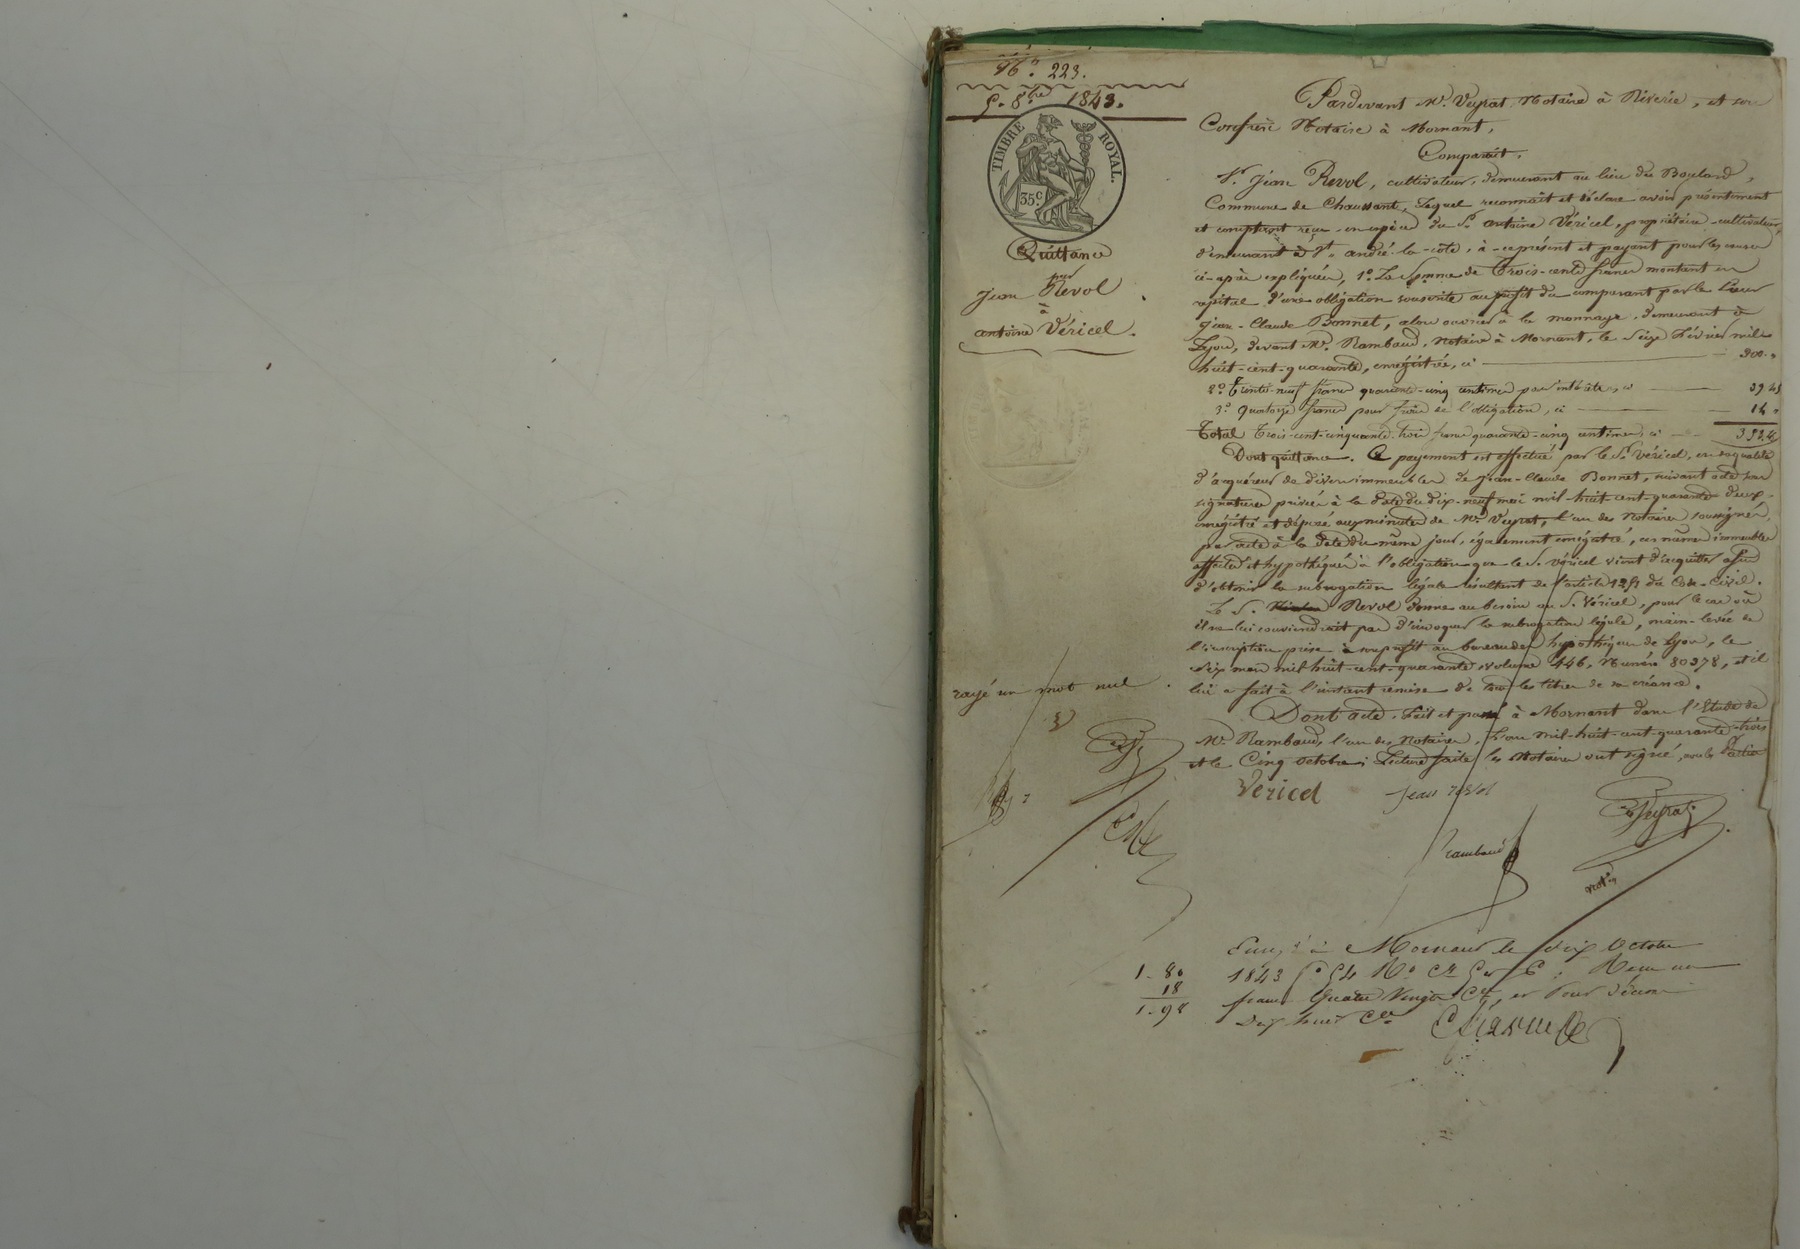 N.° 223.
5. 8.bre 1843.
TIMBRE ROYAL.
35c.
Quittance
par
Jean Revol
à
antoine Véricel.
Pardevant M.e Veyrat, Notaire à Riverie, et son
Confrère Notaire à Mornant,
Comparait,
S.r Jean Revol, cultivateur, demeurant au lieu du Boulard,
Commune de Chaussant, Lequel reconnait et déclare avoir présentement
et comptant reçu en espèces du S.r antoine Véricel, propriétaire cultivateur,
demeurant à S.t andré-la-côte, à ce présent et payant pour les causes
ci-après expliquées, 1.° La Somme de Trois-cents francs montant en
capital d'une obligation souscrite au profit du comparant par le Sieur
Jean-Claude Bonnet, alors ouvrier à la monnaye, demeurant à
Lyon, devant M.e Rambaud, Notaire à Mornant, le Seize Février mil
huit-cent-quarante, enregistrée, ci 300.
2.° Trente-neuf francs quarante-cinq centimes pour intérêts, ci 39 45
3.° Quatorze francs pour frais de l'obligation, ci 14
Total Trois-cent-cinquante-trois francs quarante-cinq centimes, ci 353.45
Dont quittance. Ce payement est effectué par le S.r Véricel, en sa qualité
d'acquéreur de divers immeubles de Jean-Claude Bonnet, suivant acte sous
signatures privées à la date du dix-neuf mai mil-huit-cent-quarante-deux,
enregistré et déposé aux minutes de M.e Veyrat, l'un des Notaires soussignés,
par acte à la date du même jour, également enregistré, ces mêmes immeubles
affectés et hypothéqués à l'obligation que le S.r Véricel vient d'acquitter afin
d'obtenir la subrogation légale résultant de l'article 1251 du Code-Civil.
Le S.r Revol donne au besoin au S.r Véricel, pour le cas où
il ne lui conviendrait pas d'invoquer la subrogation légale, main-levée de
l'inscription prise à son profit au bureau des hypothèques de Lyon, le
dix mars mil-huit-cent-quarante, volume 446, Numéro 80378, et il
lui a fait à l'instant remise de tous les titres de sa créance.
rayé un mot nul
Dont acte, Fait et passé à Mornant dans l'Etude de
M.e Rambaud, l'un des Notaires, L'an mil-huit-cent-quarante-trois
et le Cinq octobre; Lecture faite les Notaires ont signé, avec les Parties
Vericel Jean Revol
Veyrat
Rambaud
not.re
Enreg.é à Mornant le dix Octobre
1843 f.o 54 R.o Ce 5 et 6. Reçu un
franc Quatre Vingts Ces, et Pour décime
Dix huit Ces
1-80
18
1-98